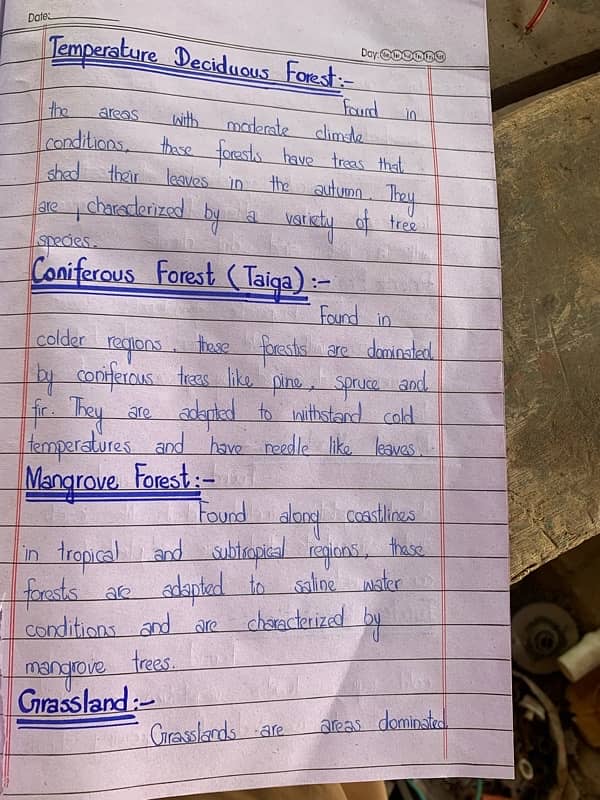 Date:
Day:
Temperature Deciduous Forest:-
Found in
the areas with moderate climate
conditions, these forests have trees that
shed their leaves in the autumn. They
are characterized by a variety of tree
species.
Coniferous Forest (Taiga):-
Found in
colder regions, these forests are dominated
by coniferous trees like pine, spruce and
fir. They are adapted to withstand cold
temperatures and have needle like leaves.
Mangrove Forest:-
Found along coastlines
in tropical and subtropical regions, these
forests are adapted to saline water
conditions and are characterized by
mangrove trees.
Grassland:-
Grasslands are areas dominated